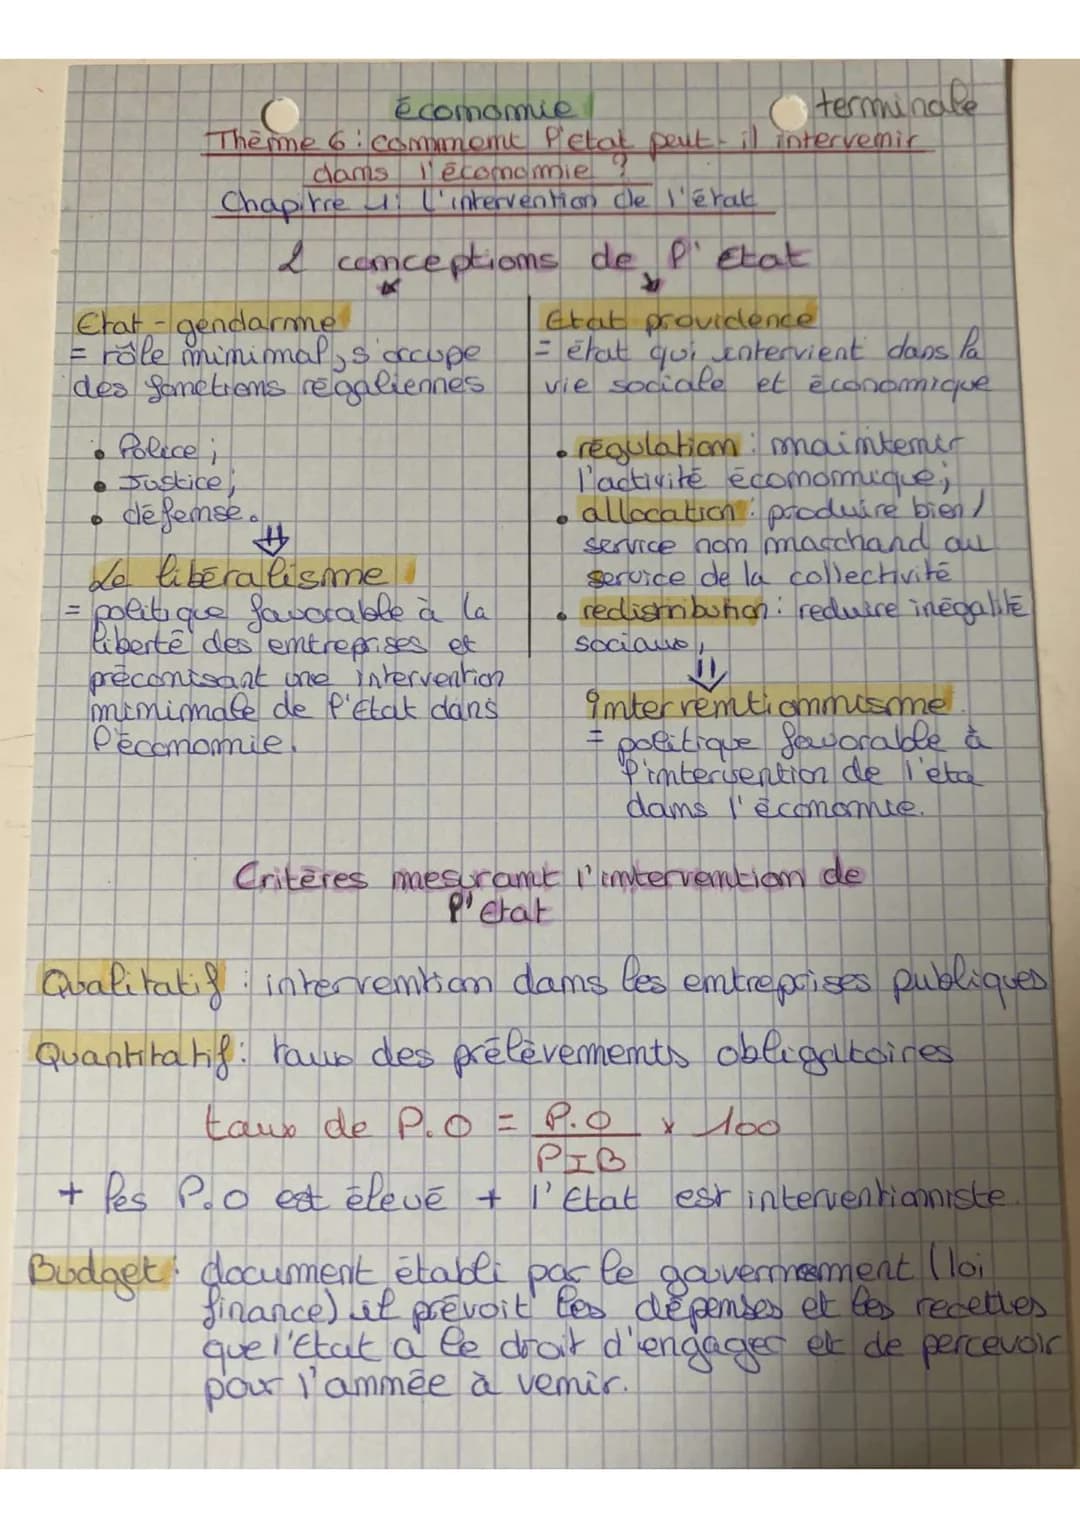 économie
terminale
Thème 6 : comment l'état peut-il intervenir
dans l'économie ?
Chapitre 1 : L'intervention de l'état
2 conceptions de l'Etat
Etat-gendarme
= rôle minimal, s'occupe
des fonctions régaliennes
• Police ;
• Justice ;
• défense.
⇓
Le libéralisme
= politique favorable à la
liberté des entreprises et
préconisant une intervention
minimale de l'Etat dans
l'économie.
Etat providence
= état qui intervient dans la
vie sociale et économique
• régulation : maintenir
l'activité économique ;
• allocation : produire bien /
service non marchand au
service de la collectivité
• redistribution : reduire inégalité
sociaux,
⇓
interventionnisme
= politique favorable à
l'intervention de l'eta
dans l'économie.
Critères mesurant l'intervention de
l'état
Qualitatif : intervention dans les entreprises publiques
Quantitatif : taux des prélèvements obligatoires
taux de P.O = P.O / PIB x 100
+ les P.O est élevé + l'Etat est interventionniste.
Budget : document établi par le gouvernement (loi
finance) il prévoit les dépenses et les recettes
que l'Etat a le droit d'engager et de percevoir
pour l'année à venir.